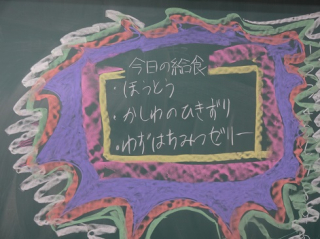 今日の給食
・ほうとう
・かしわのひきずり
・ゆずはちみつゼリー